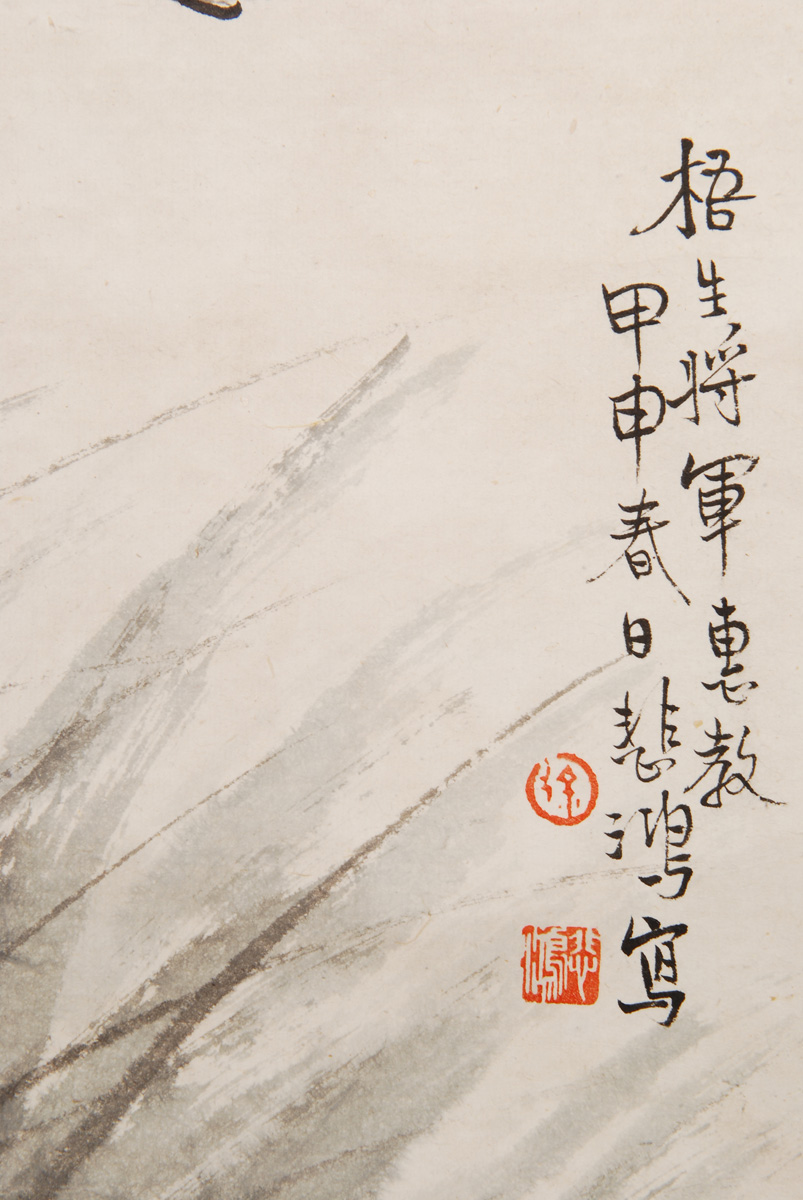 梧生將軍惠教
甲申春日悲鴻寫
徐
悲鴻